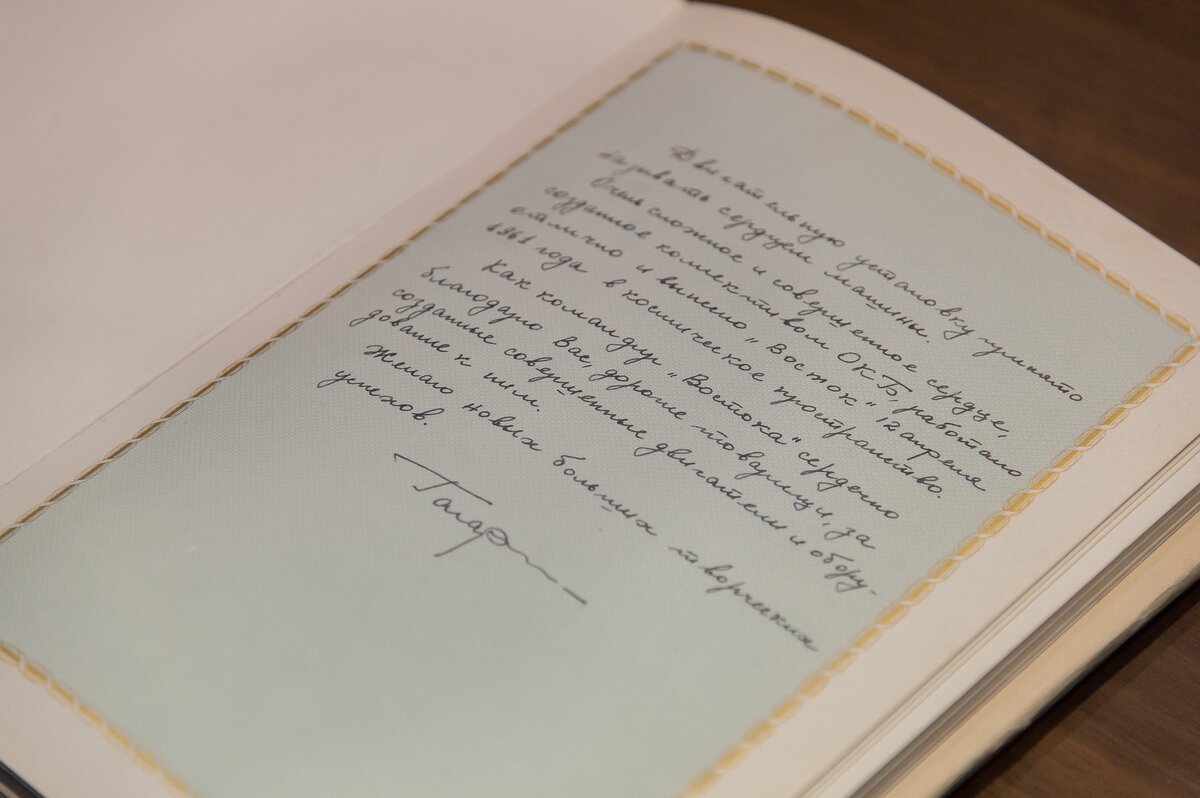 Двигательную установку принято
называть сердцем машины.
Очень сложное и совершенное сердце,
созданное коллективом ОКБ, работало
отлично и вынесло „Восток" 12 апреля
1961 года в космическое пространство.
Как командир „Востока" сердечно
благодарю Вас, дорогие товарищи, за
созданные совершенные двигатели и обору-
дование к ним.
Желаю новых больших творческих
успехов.
Гагарин